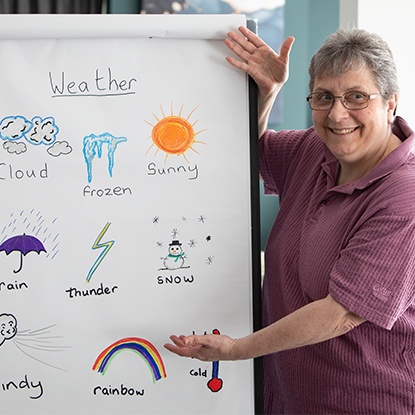 Weather
Cloud
Frozen
Sunny
rain
thunder
SNOW
indy
rainbow
cold